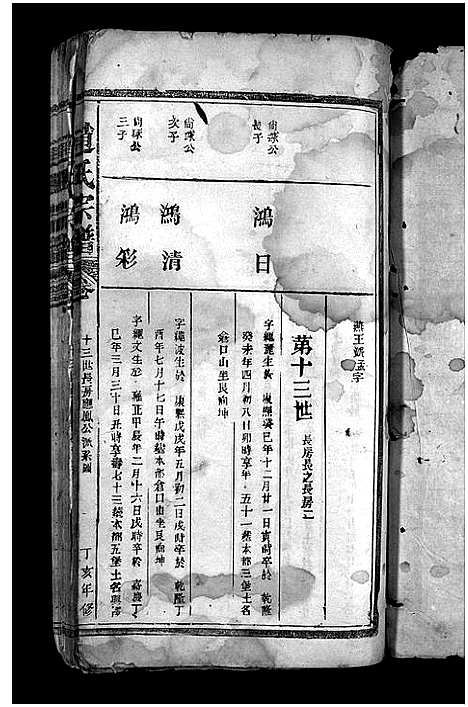 燕王□孟字
第十三世 長房長之長房二
尙球公長子
鴻日
字繩麗生於 康熙癸巳年十二月廿一日亥時卒於 乾隆
癸未年四月初八日卯時享年 五十一塟本都三堡土名
倉口山坐艮向坤
尙球公次子
鴻清
字繩波生於 康熙戊戌年五月初二日戌時卒於 乾隆丁
酉年七月十七日午時塟本都倉口山坐艮向坤
尙球公三子
鴻彩
字繩文生於 雍正甲辰年二月十六日戌時卒於 嘉慶丁
巳年三月三十日丑時享壽七十三塟本都五堡土名
趙氏宗譜 卷
十三世長房應鳳公派系圖
丁亥年修